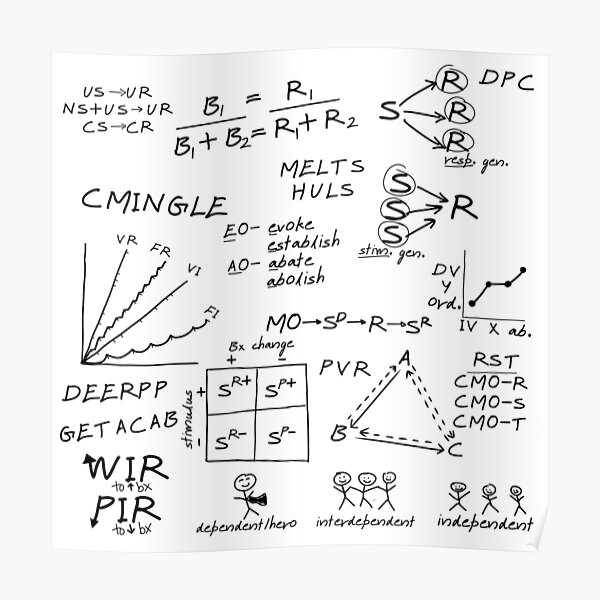 US→UR
NS+US→UR
CS→CR
B1 = R1
B1 + B2 = R1 + R2
S
R
R
R
DPC
resp. gen.
MELTS
HULS
S
S
S
R
stim. gen.
CMINGLE
EO- evoke
establish
AO- abate
abolish
VR
FR
VI
FI
DV
Y
ord.
IV X ab.
MO→SD→R→SR
Bx change
+ -
stimulus
+
-
SR+ SP+
SR- SP-
PVR
A
B
C
RST
CMO-R
CMO-S
CMO-T
DEERPP
GETACAB
WIR
to ↑ bx
PIR
to ↓ bx
dependent/hero
interdependent
independent